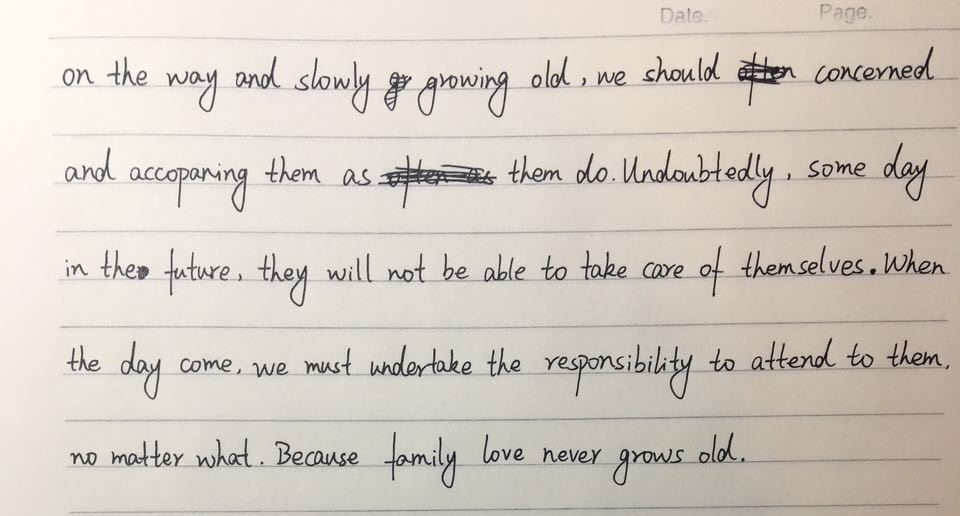 Date. Page.
on the way and slowly growing old, we should concerned
and accoparing them as them do. Undoubtedly, some day
in the future, they will not be able to take care of themselves. When
the day come, we must undertake the responsibility to attend to them,
no matter what. Because family love never grows old.